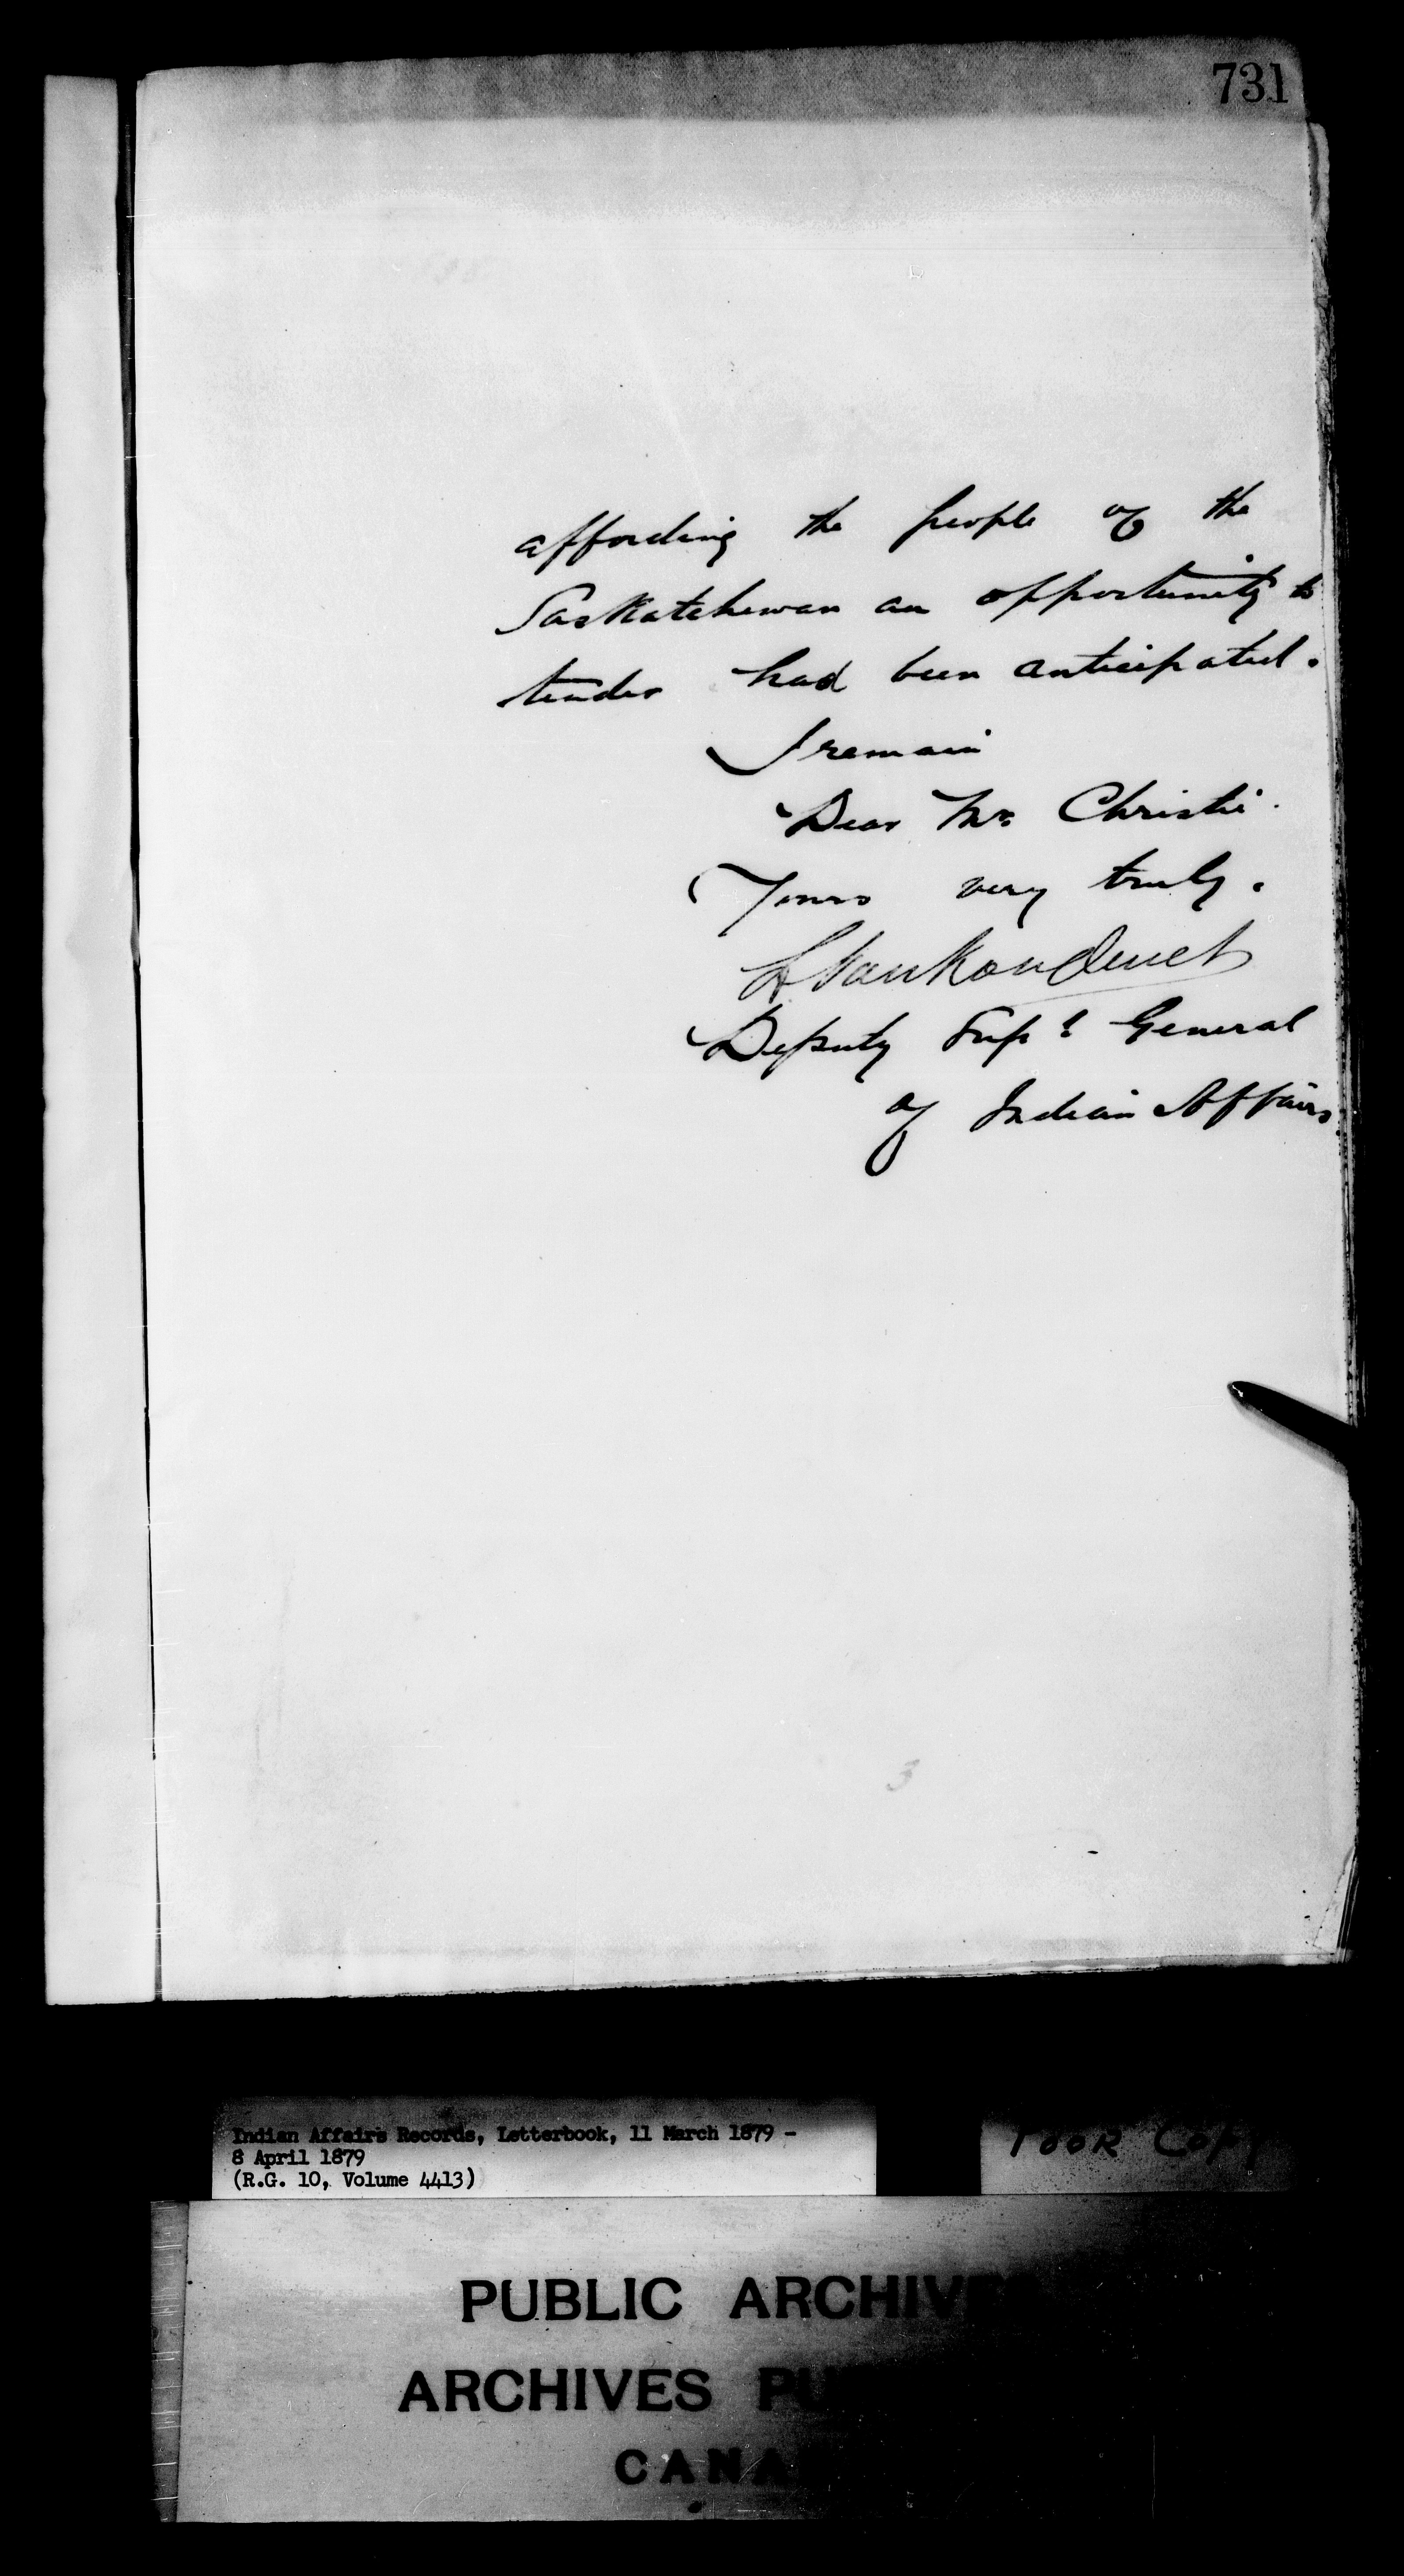 731
affording the people of the
Saskatchewan an opportunity to
tender had been anticipated.
I remain
Dear Mr. Christie.
Yours very truly.
L VanKoughnet
Deputy Supt General
of Indian Affairs.
3
Indian Affairs Records, Letterbook, 11 March 1879 -
8 April 1879
(R.G. 10, Volume 4413)
POOR COPY
PUBLIC ARCHIVES
ARCHIVES PU
CANA